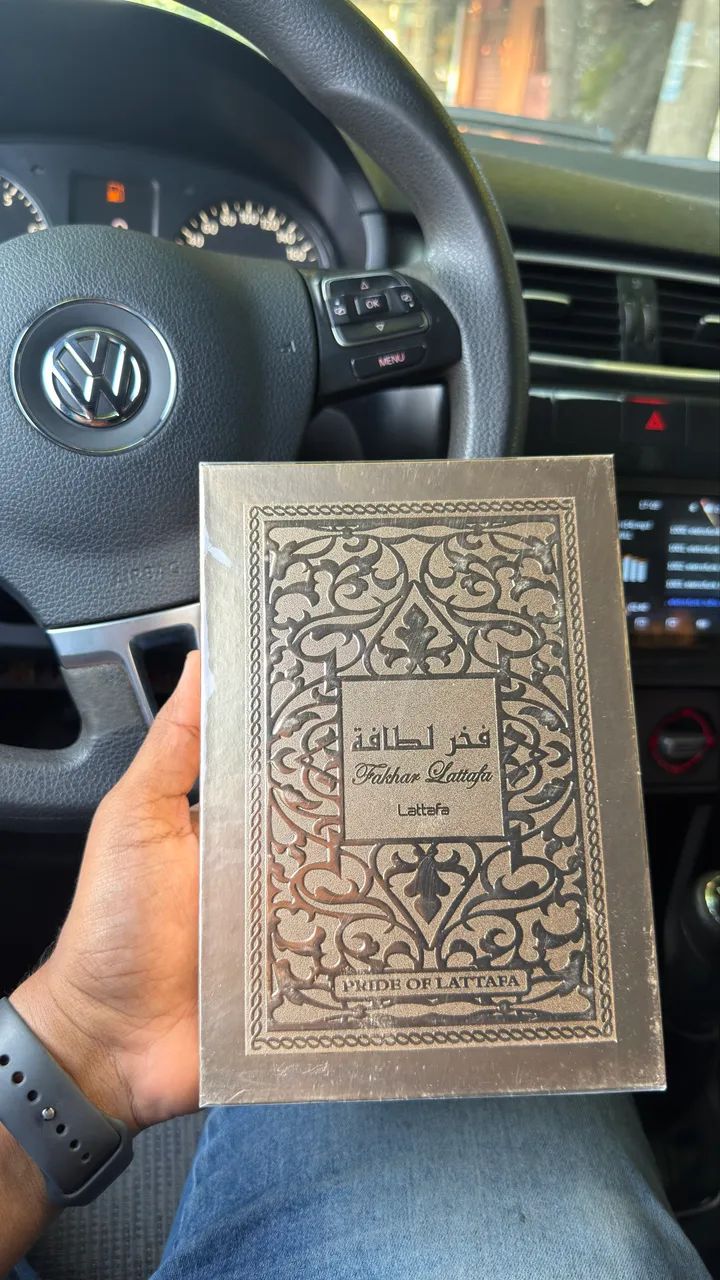 OK
MENU
AIRBAG
فخر لطافة
Fakhar Lattafa
Lattafa
PRIDE OF LATTAFA